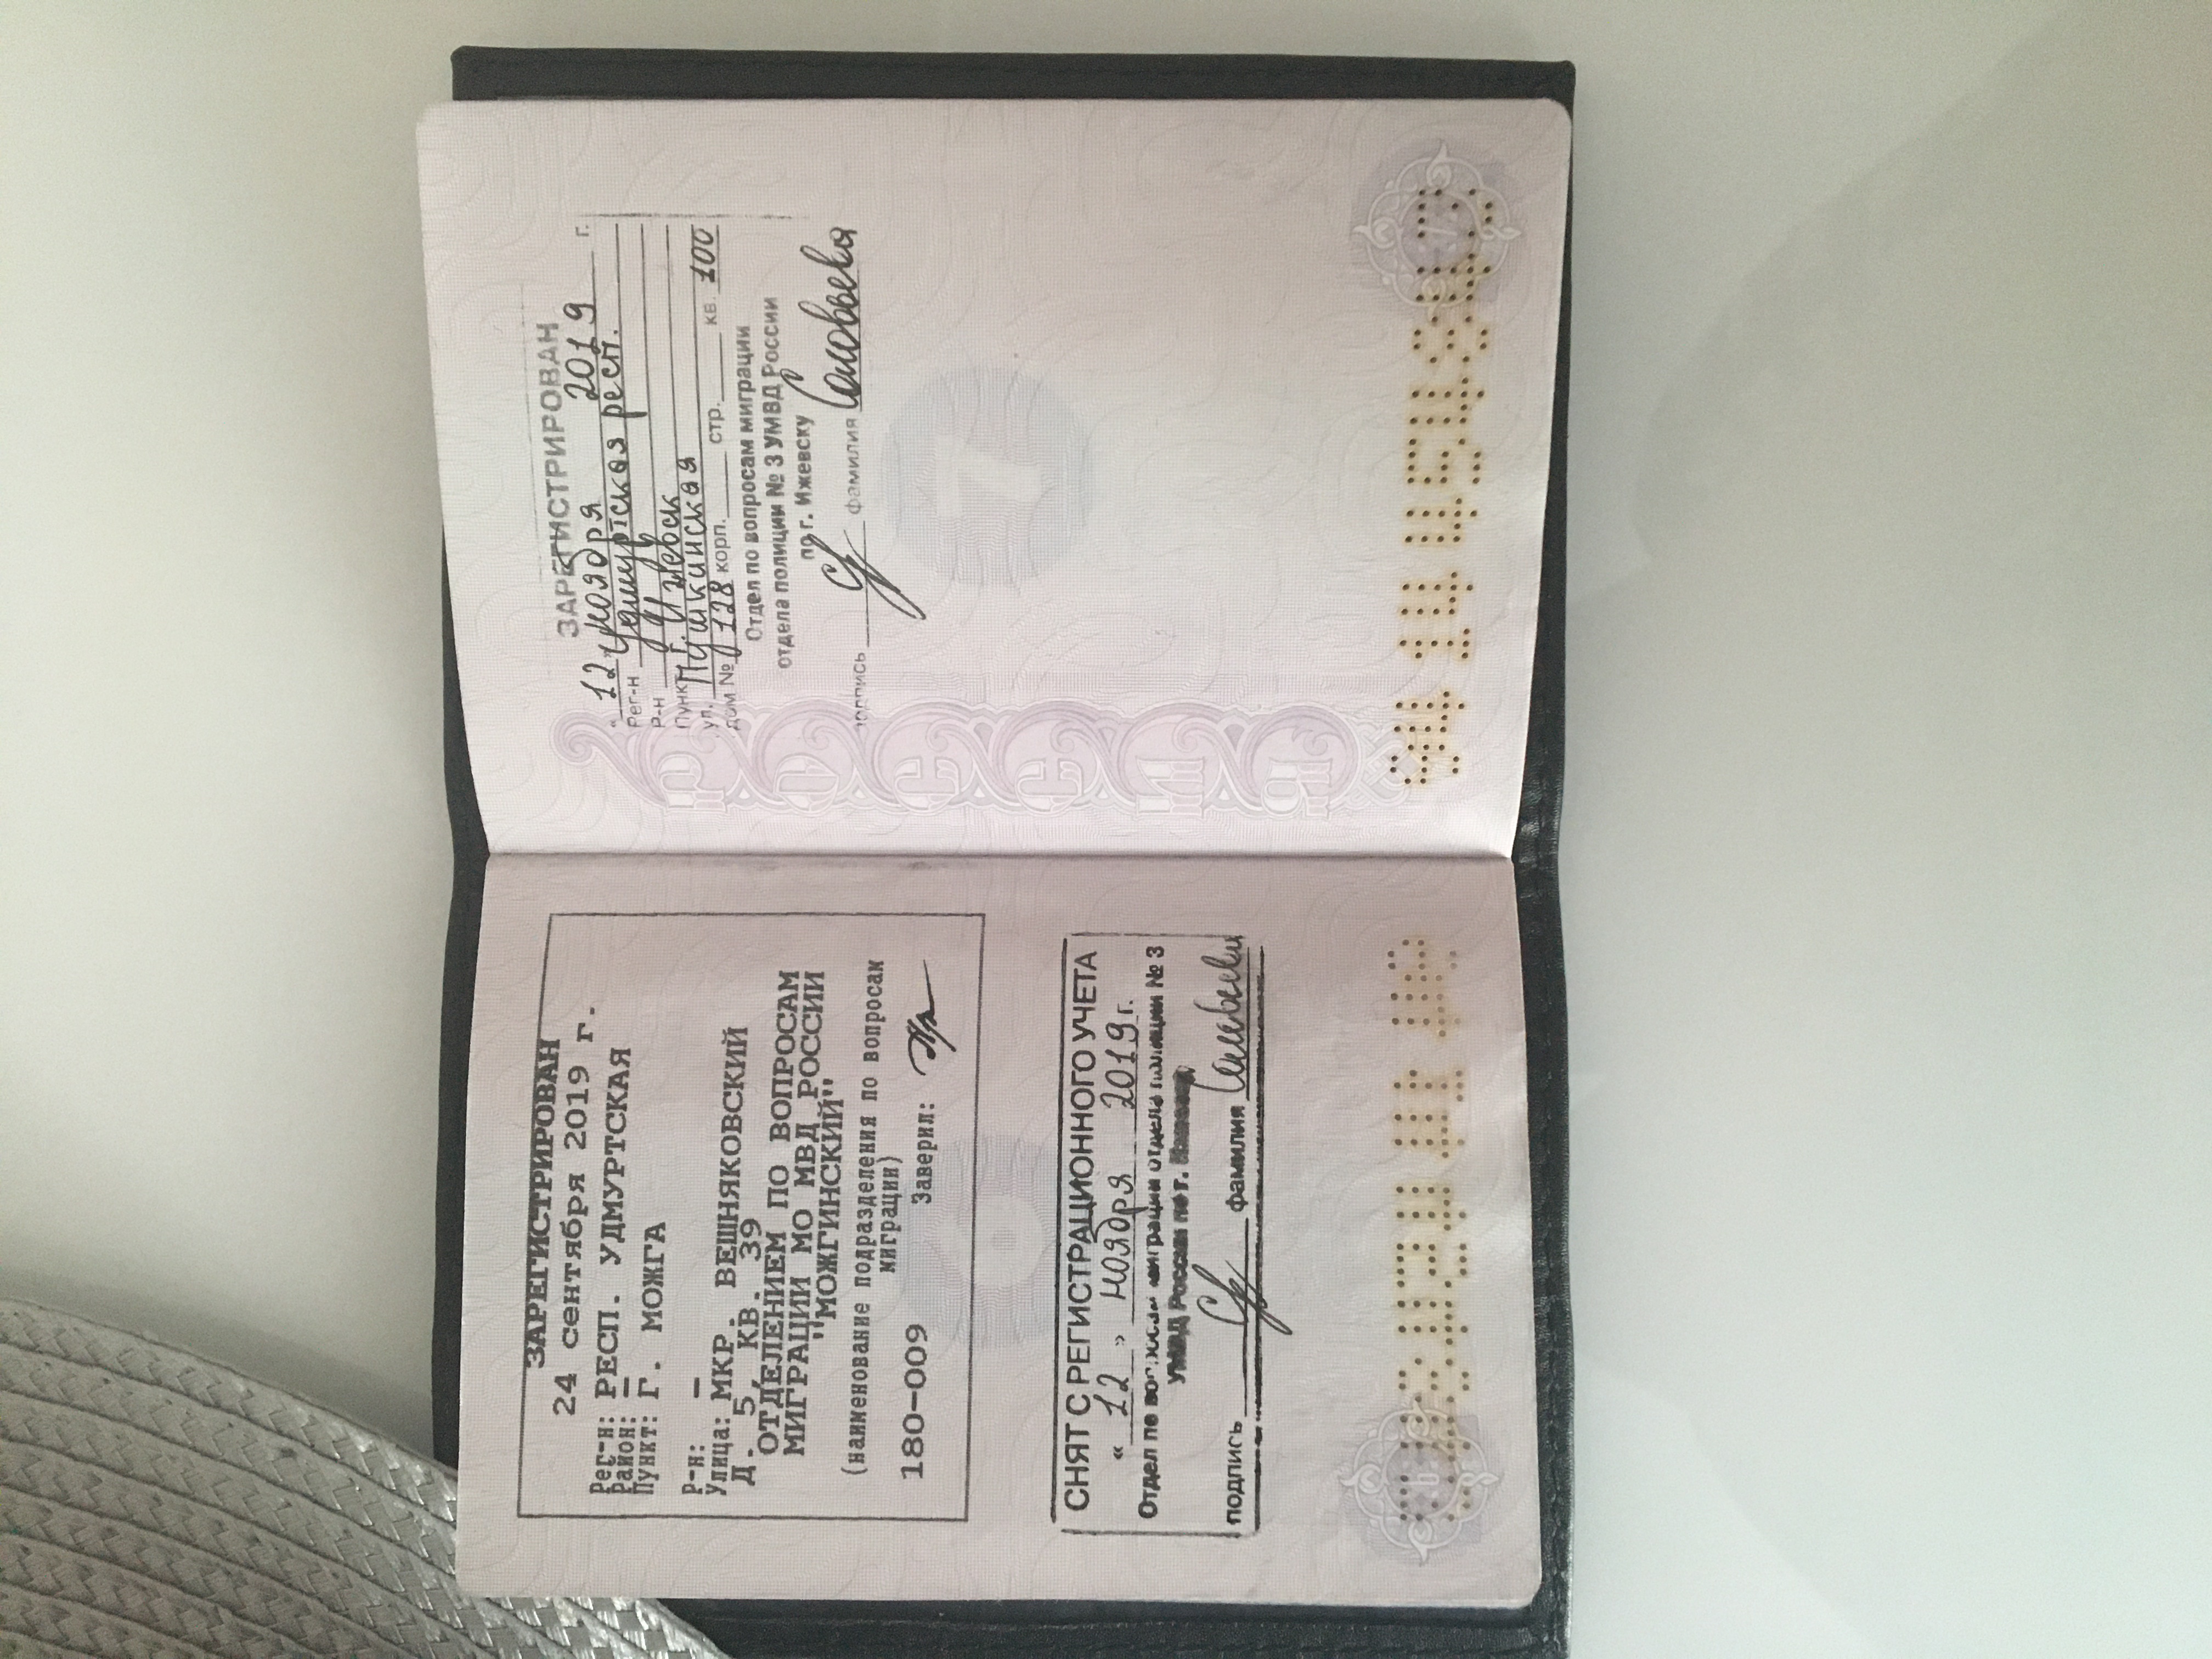 ЗАРЕГИСТРИРОВАН
24 сентября 2019 г.
Рег-н: РЕСП. УДМУРТСКАЯ
Район: –
Пункт: Г. МОЖГА
Р-н: –
Улица: МКР. ВЕШНЯКОВСКИЙ
Д. 5, КВ. 39
ОТДЕЛЕНИЕМ ПО ВОПРОСАМ
МИГРАЦИИ МО МВД РОССИИ
"МОЖГИНСКИЙ"
(наименование подразделения по вопросам
миграции)
180-009 Заверил:
6
СНЯТ С РЕГИСТРАЦИОННОГО УЧЕТА
« 12 » ноября 2019 г.
Отдел по вопросам миграции отдела полиции № 3
УМВД России по г.
подпись фамилия Соловьева
6
ЗАРЕГИСТРИРОВАН
« 12 » ноября 2019 г.
Рег-н Удмуртская респ.
Р-н
Пункт г. Ижевск
ул. Пушкинская
дом № 128 корп. стр. кв. 100
Отдел по вопросам миграции
отдела полиции № 3 УМВД России
по г. Ижевску
подпись фамилия Соловьева
РОССИЯ
7
94 14 454
7